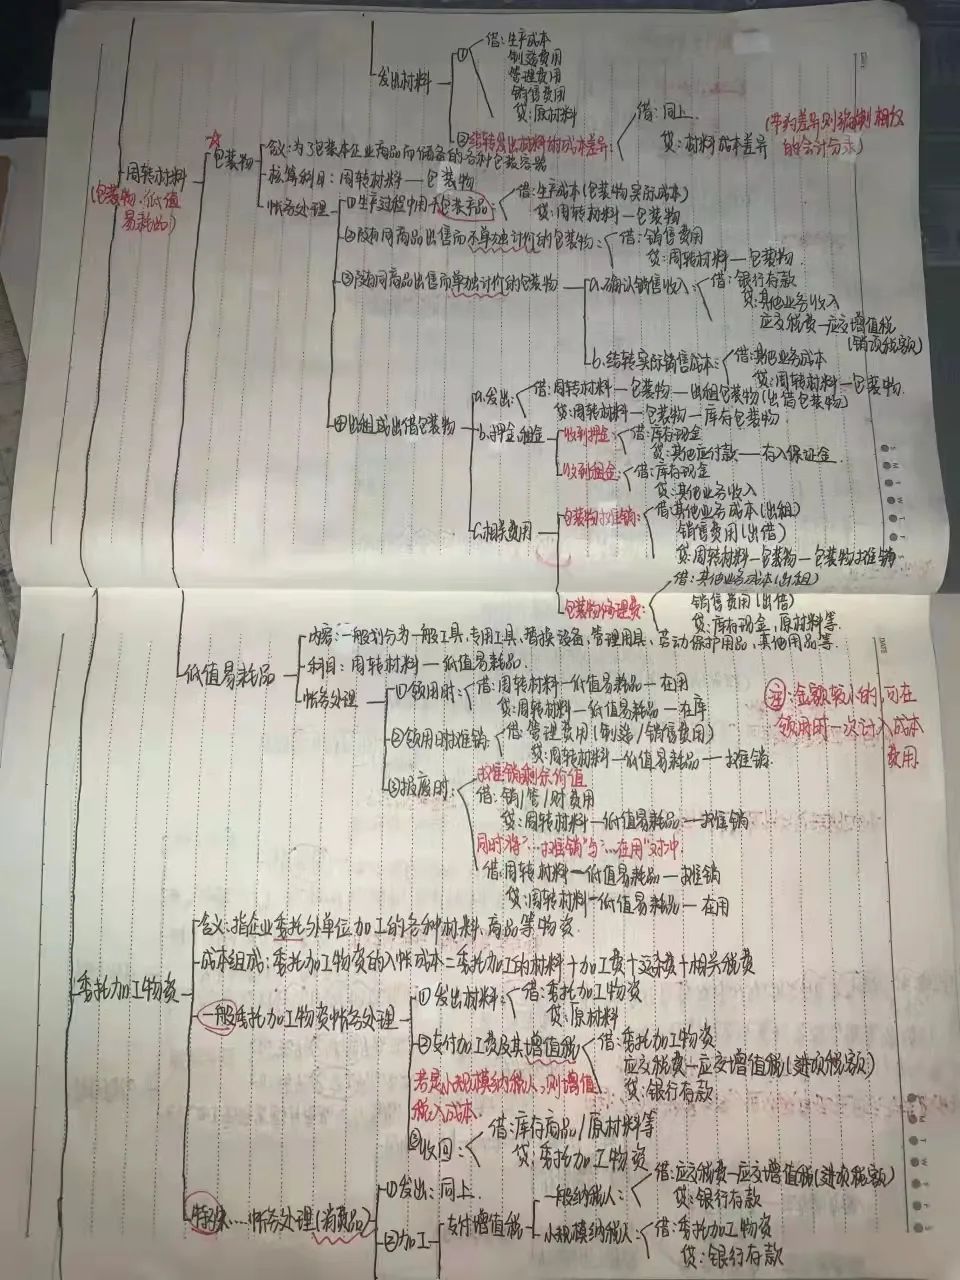 发出材料
①
借：生产成本
制造费用
管理费用
销售费用
贷：原材料
②结转发出材料的成本差异：
借：同上
贷：材料成本差异
(节约差异则编制相反
的会计分录)
周转材料
(包装物、低值
易耗品)
☆
包装物
含义：为了包装本企业商品而储备的各种包装容器
核算科目：周转材料—包装物
帐务处理
①生产过程中用于包装产品：
借：生产成本(包装物实际成本)
贷：周转材料—包装物
②随同商品出售而不单独计价的包装物：
借：销售费用
贷：周转材料—包装物
③随同商品出售而单独计价的包装物
a.确认销售收入：
借：银行存款
贷：其他业务收入
应交税费—应交增值税
(销项税额)
b.结转实际销售成本：
借：其他业务成本
贷：周转材料—包装物
④出租或出借包装物
a.发出：
借：周转材料—包装物—出租包装物(出借包装物)
贷：周转材料—包装物—库存包装物
b.押金、租金
收到押金：
借：库存现金
贷：其他应付款—存入保证金
收到租金：
借：库存现金
贷：其他业务收入
c.相关费用
包装物摊销：
借：其他业务成本(出租)
销售费用(出借)
贷：周转材料—包装物—包装物摊销
包装物修理费：
借：其他业务成本(出租)
销售费用(出借)
贷：库存现金、原材料等
低值易耗品
内容：一般划分为一般工具、专用工具、替换设备、管理用具、劳动保护用品、其他用品等
科目：周转材料—低值易耗品
帐务处理
①领用时：
借：周转材料—低值易耗品—在用
贷：周转材料—低值易耗品—在库
②领用时摊销：
借：管理费用(制造/销售费用)
贷：周转材料—低值易耗品—摊销
③报废时：
摊销剩余价值
借：销/管/财费用
贷：周转材料—低值易耗品—摊销
同时将“…摊销”与“…在用”对冲
借：周转材料—低值易耗品—摊销
贷：周转材料—低值易耗品—在用
注：金额较小的，可在
领用时一次计入成本
费用
委托加工物资
含义：指企业委托外单位加工的各种材料、商品等物资
成本组成：委托加工物资的入帐成本=委托加工的材料+加工费+运杂费+相关税费
一般委托加工物资帐务处理
①发出材料：
借：委托加工物资
贷：原材料
②支付加工费及其增值税
借：委托加工物资
应交税费—应交增值税(进项税额)
贷：银行存款
若是小规模纳税人，则增值
税入成本
③收回：
借：库存商品/原材料等
贷：委托加工物资
特殊……帐务处理(消费品)
①发出：同上
②加工
支付增值税
一般纳税人：
借：应交税费—应交增值税(进项税额)
贷：银行存款
小规模纳税人：
借：委托加工物资
贷：银行存款